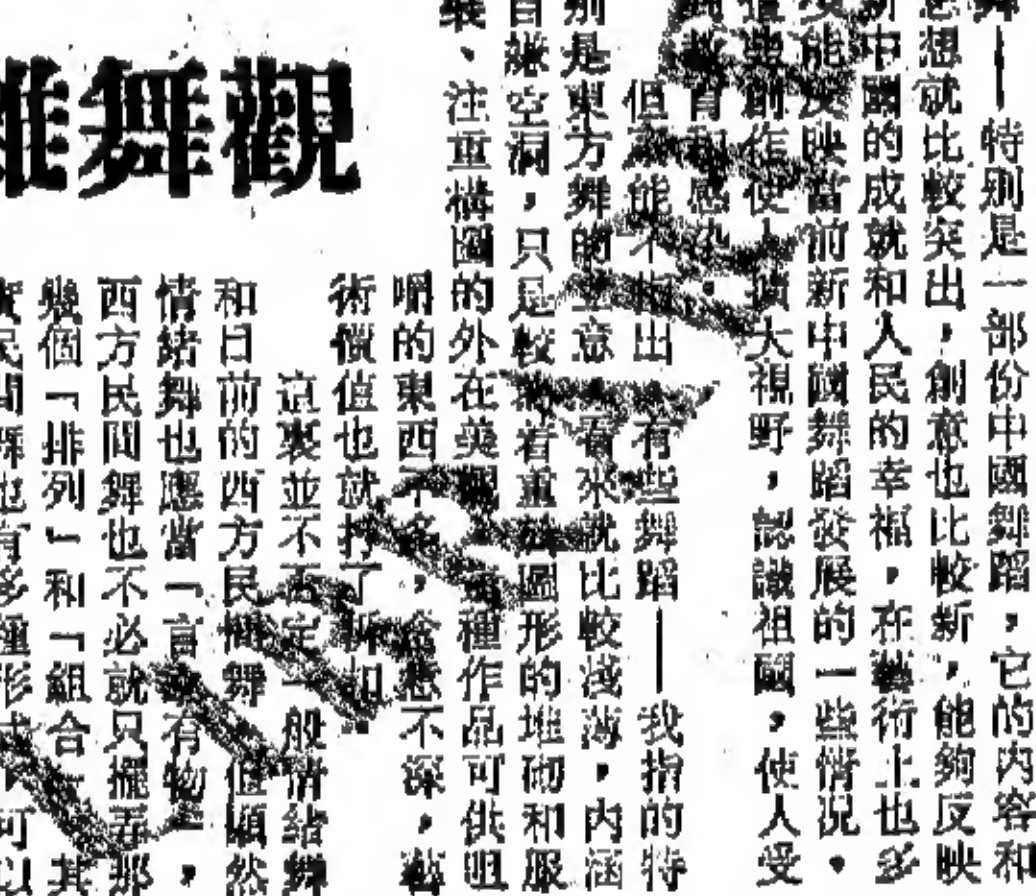 觀舞雜
特別是一部份中國舞蹈，它的內容和
想就比較突出，創意也比較新，能夠反映
中國的成就和人民的幸福，在藝術上也多
能反映當前新中國舞蹈發展的一些情况。
些創作使擴大視野，認識祖國，使人受
教育和感
但能不指出有些舞蹈——我指的特
別是東方舞的立意看來就比較淺薄，內涵
自嫌空洞，只是較着重圖形的堆砌和服
裝、注重構圖的外在美種作品可供咀
嚼的東西不多，意念不深，藝
術價值也就打了折扣
這裏並不否定一般情緒舞
和日前的西方民間舞但顯然
情緒舞也應當「言有物」，
西方民間舞也不必就只擺弄那
幾個「排列」和「組合」其
民間舞也有多種形式可以